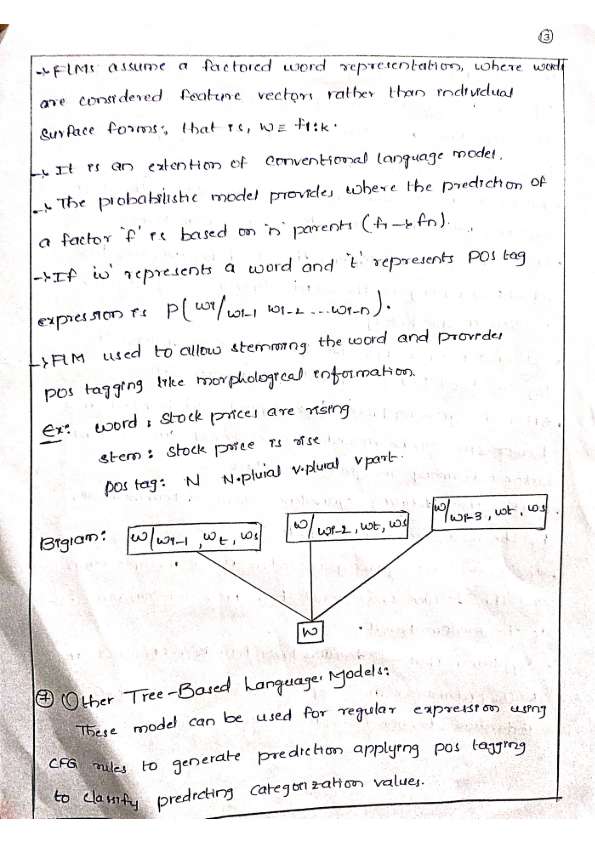 13
→ FLMs assume a factored word representation, where words
are considered feature vectors rather than individual
surface forms:, that is, w ≡ f1:k.
→ It is an extention of conventional language model.
→ The probabilistic model provides where the prediction of
a factor 'f' is based on 'n' parents (f1 → fn).
→ If 'w' represents a word and 't' represents POS tag
expression is P(wi/wi-1 wi-2 ... wi-n).
→ FLM used to allow stemming the word and provides
pos tagging like morphological information.
Ex: word : stock prices are rising
stem : stock price is rise
pos tag: N N.plural v.plural v part.
Bigram: w/wi-1, wt, ws w/wi-2, wt, ws w/wi-3, wt, ws
w
⑦ Other Tree-Based Language Models:
These model can be used for regular expression using
CFG rules to generate prediction applying pos tagging
to classify predicting categorization values.